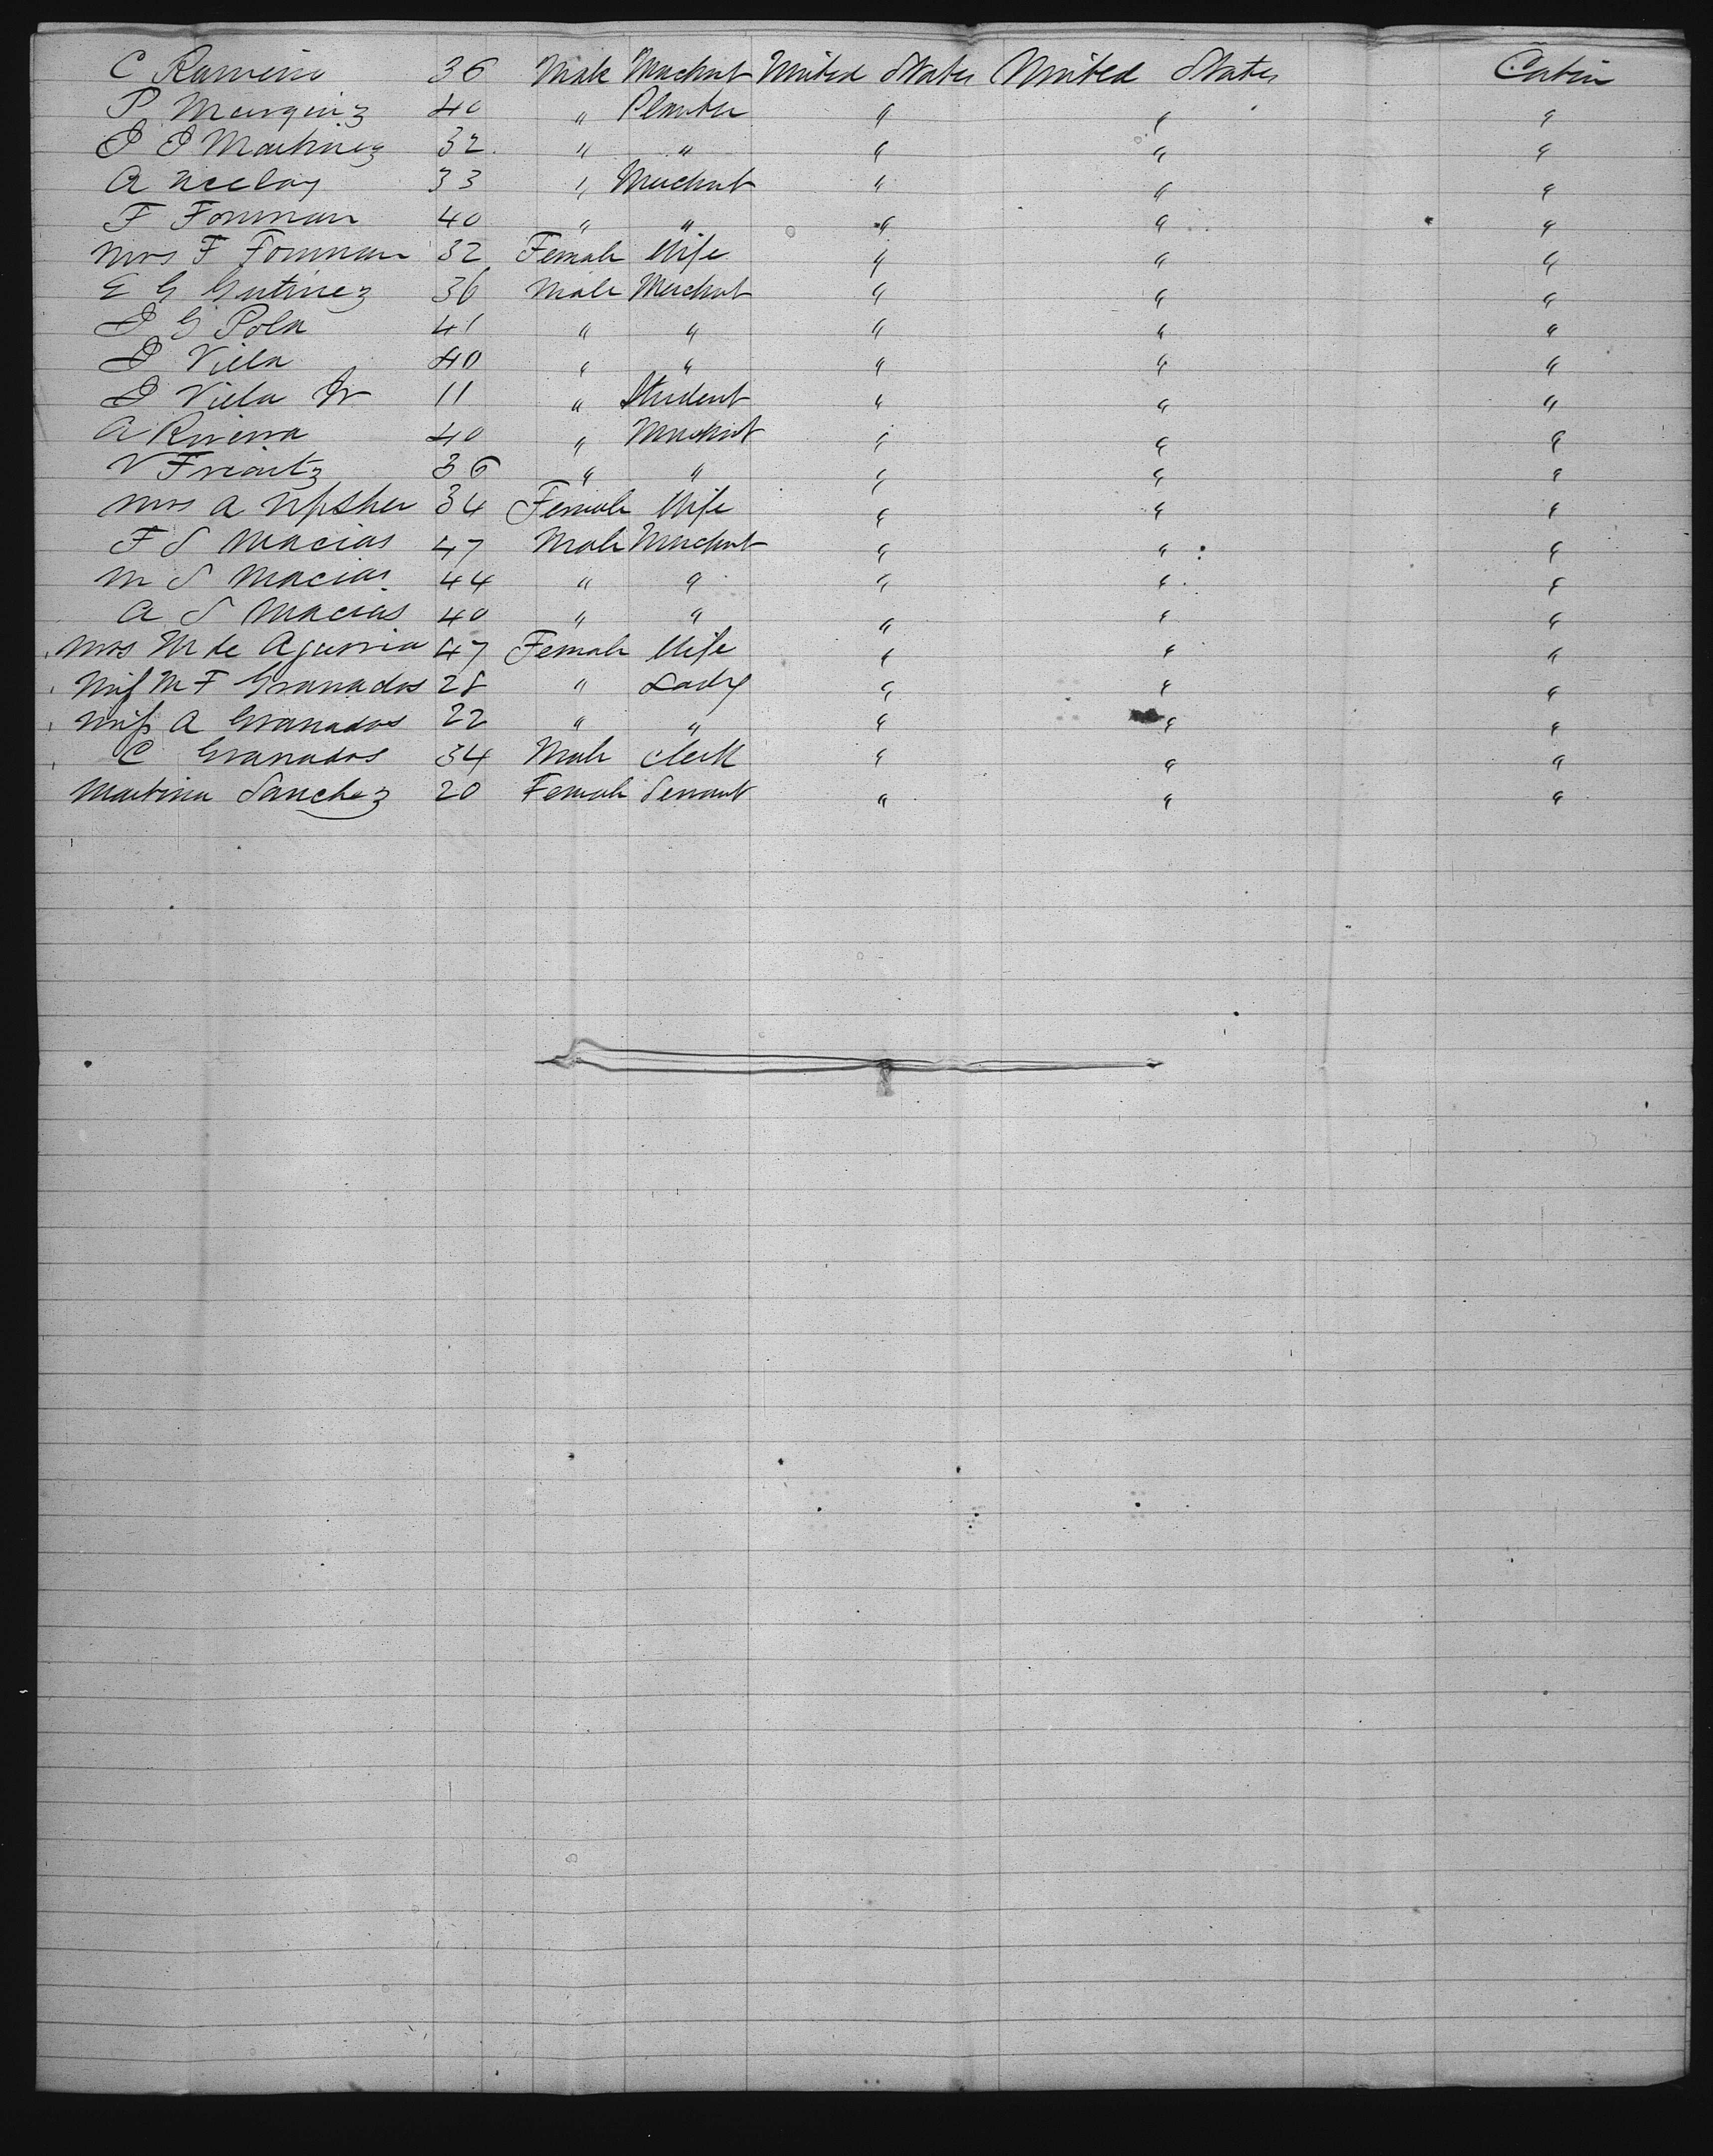 C Ramirez 36 Male Merchant United States United States Cabin
P Marquiz 40 " Planter " " "
J J Martinez 32 " " " " "
A 33 " Merchant " " "
F Forman 40 " " " " "
Mrs F Forman 32 Female Wife " " "
E G Gutinez 36 Male Merchant " " "
J G Pola 41 " " " " "
J Vila 40 " " " " "
J Vila Jr 11 " Student " " "
A Rivera 40 " Merchant " " "
V 36 " " " " "
Mrs A Upsher 34 Female Wife " " "
F S Macias 47 Male Merchant " " "
M S Macias 44 " " " " "
A S Macias 40 " " " " "
Mrs M de Agurria 47 Female Wife " " "
Miss M F Granados 28 " Lady " " "
Miss A Granados 22 " " " " "
C Granados 34 Male Clerk " " "
Martina Sanchez 20 Female Servant " " "